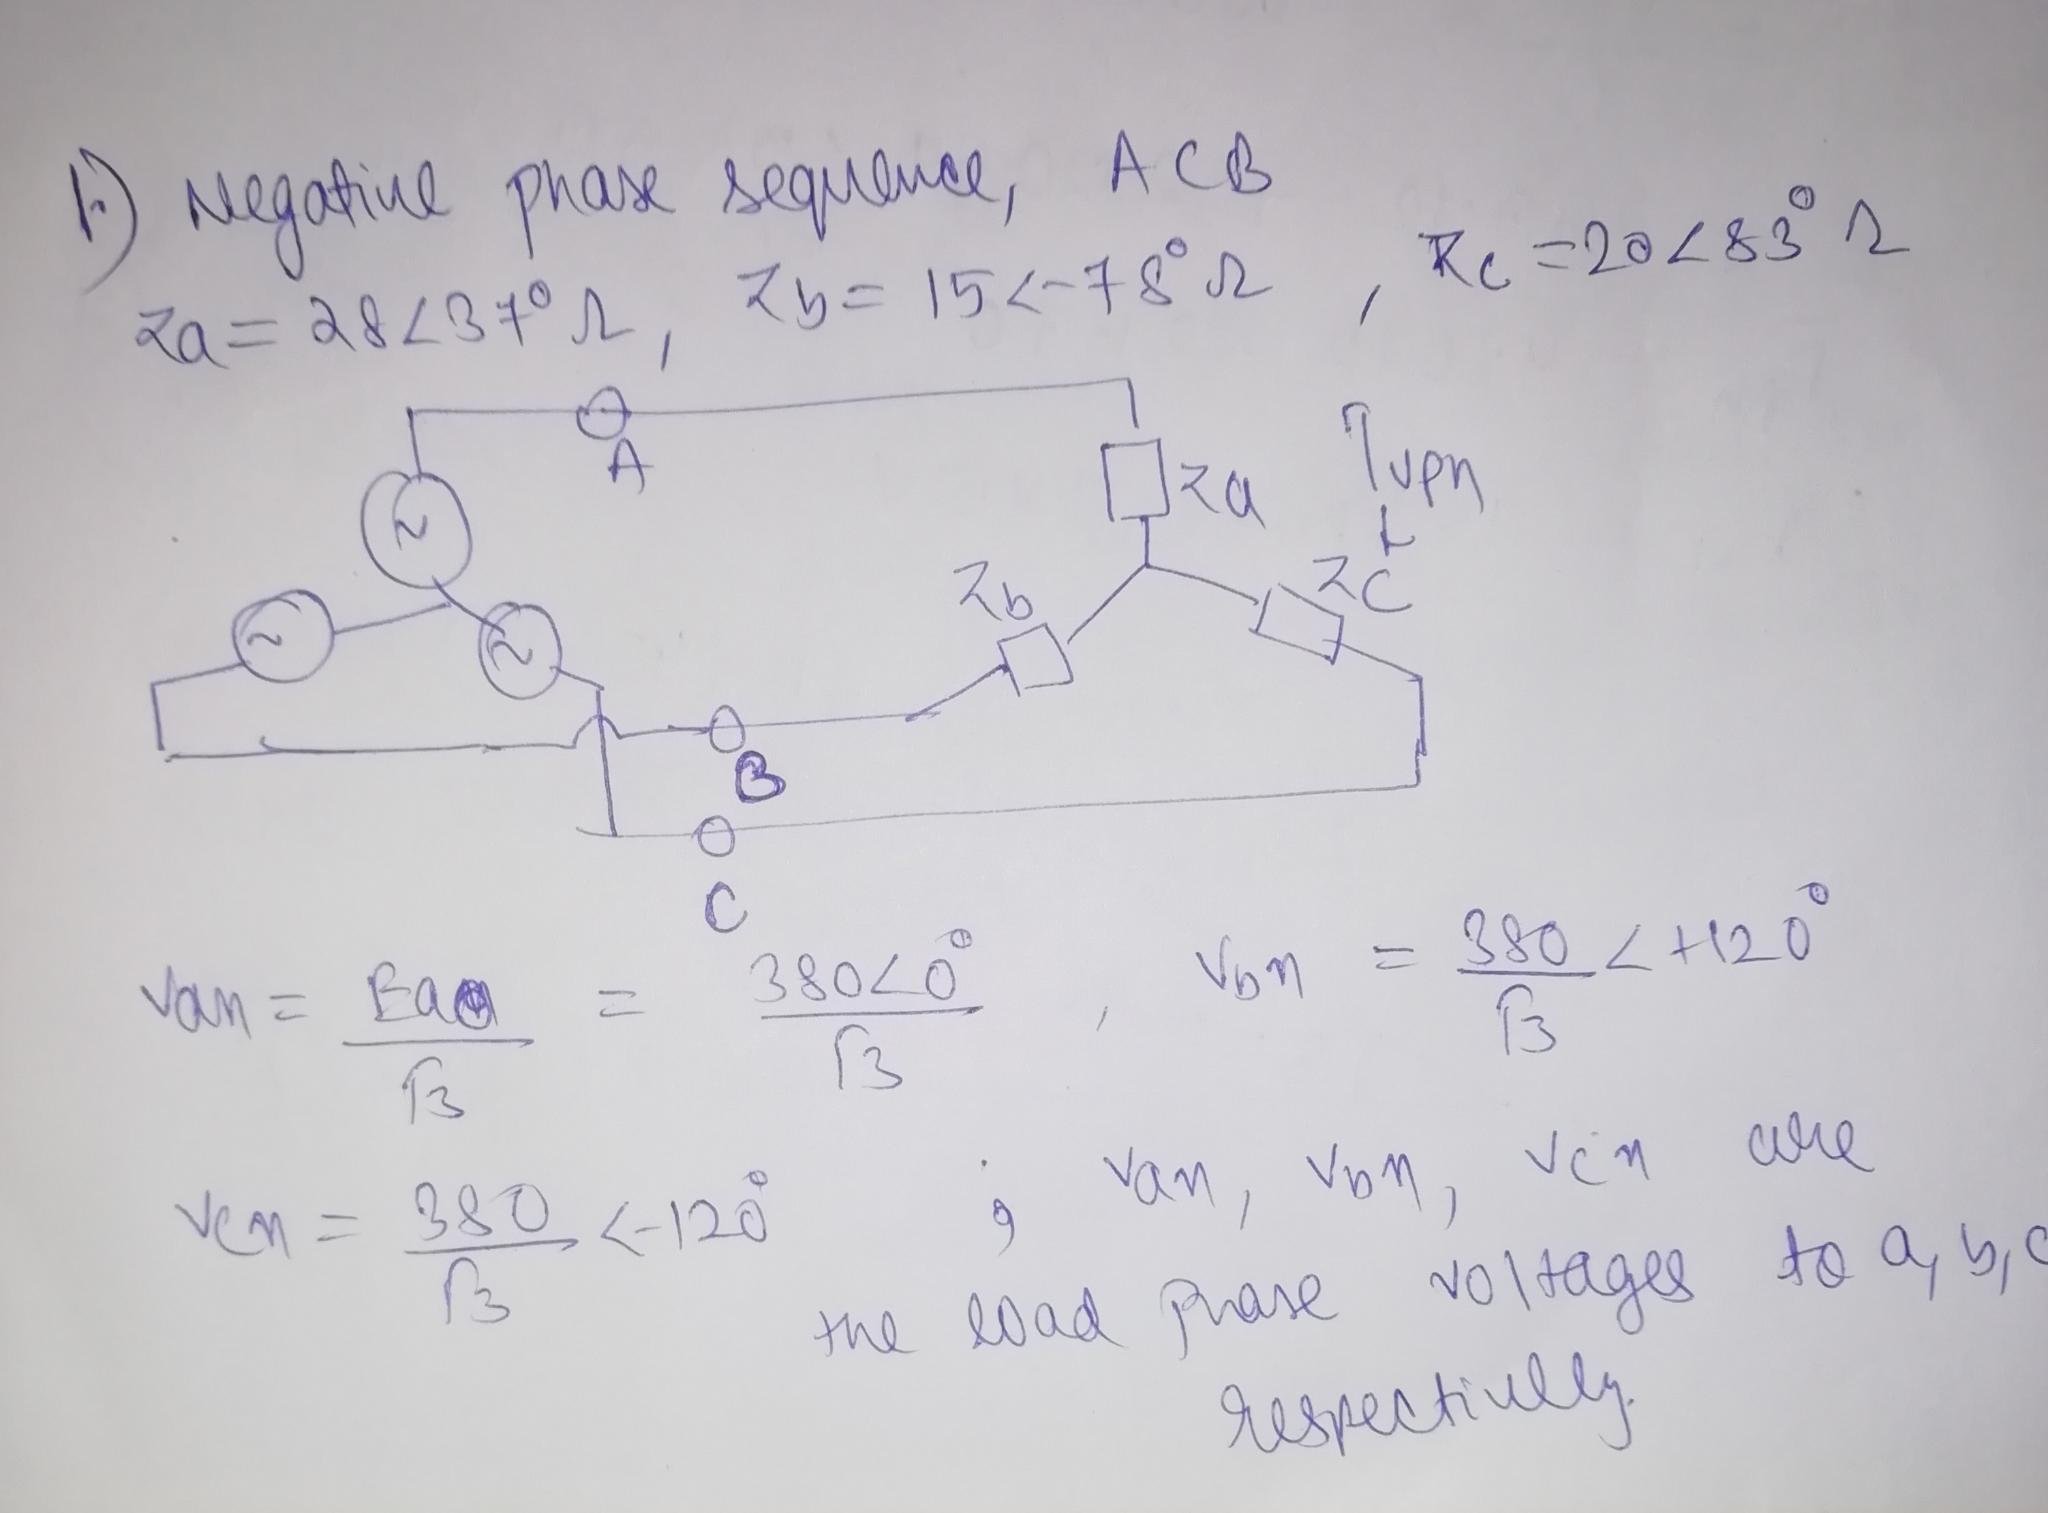 1.) Negative phase sequence, ACB
Za = 28∠37° Ω, Zb = 15∠-78° Ω, Zc = 20∠83° Ω
A
Za
Vpn
Zb
Zc
B
C
Van = Eaa/√3 = 380∠0°/√3, Vbn = 380/√3 ∠+120°
Vcn = 380/√3 ∠-120° ; Van, Vbn, Vcn are
the load phase voltages to a, b, c
respectively.